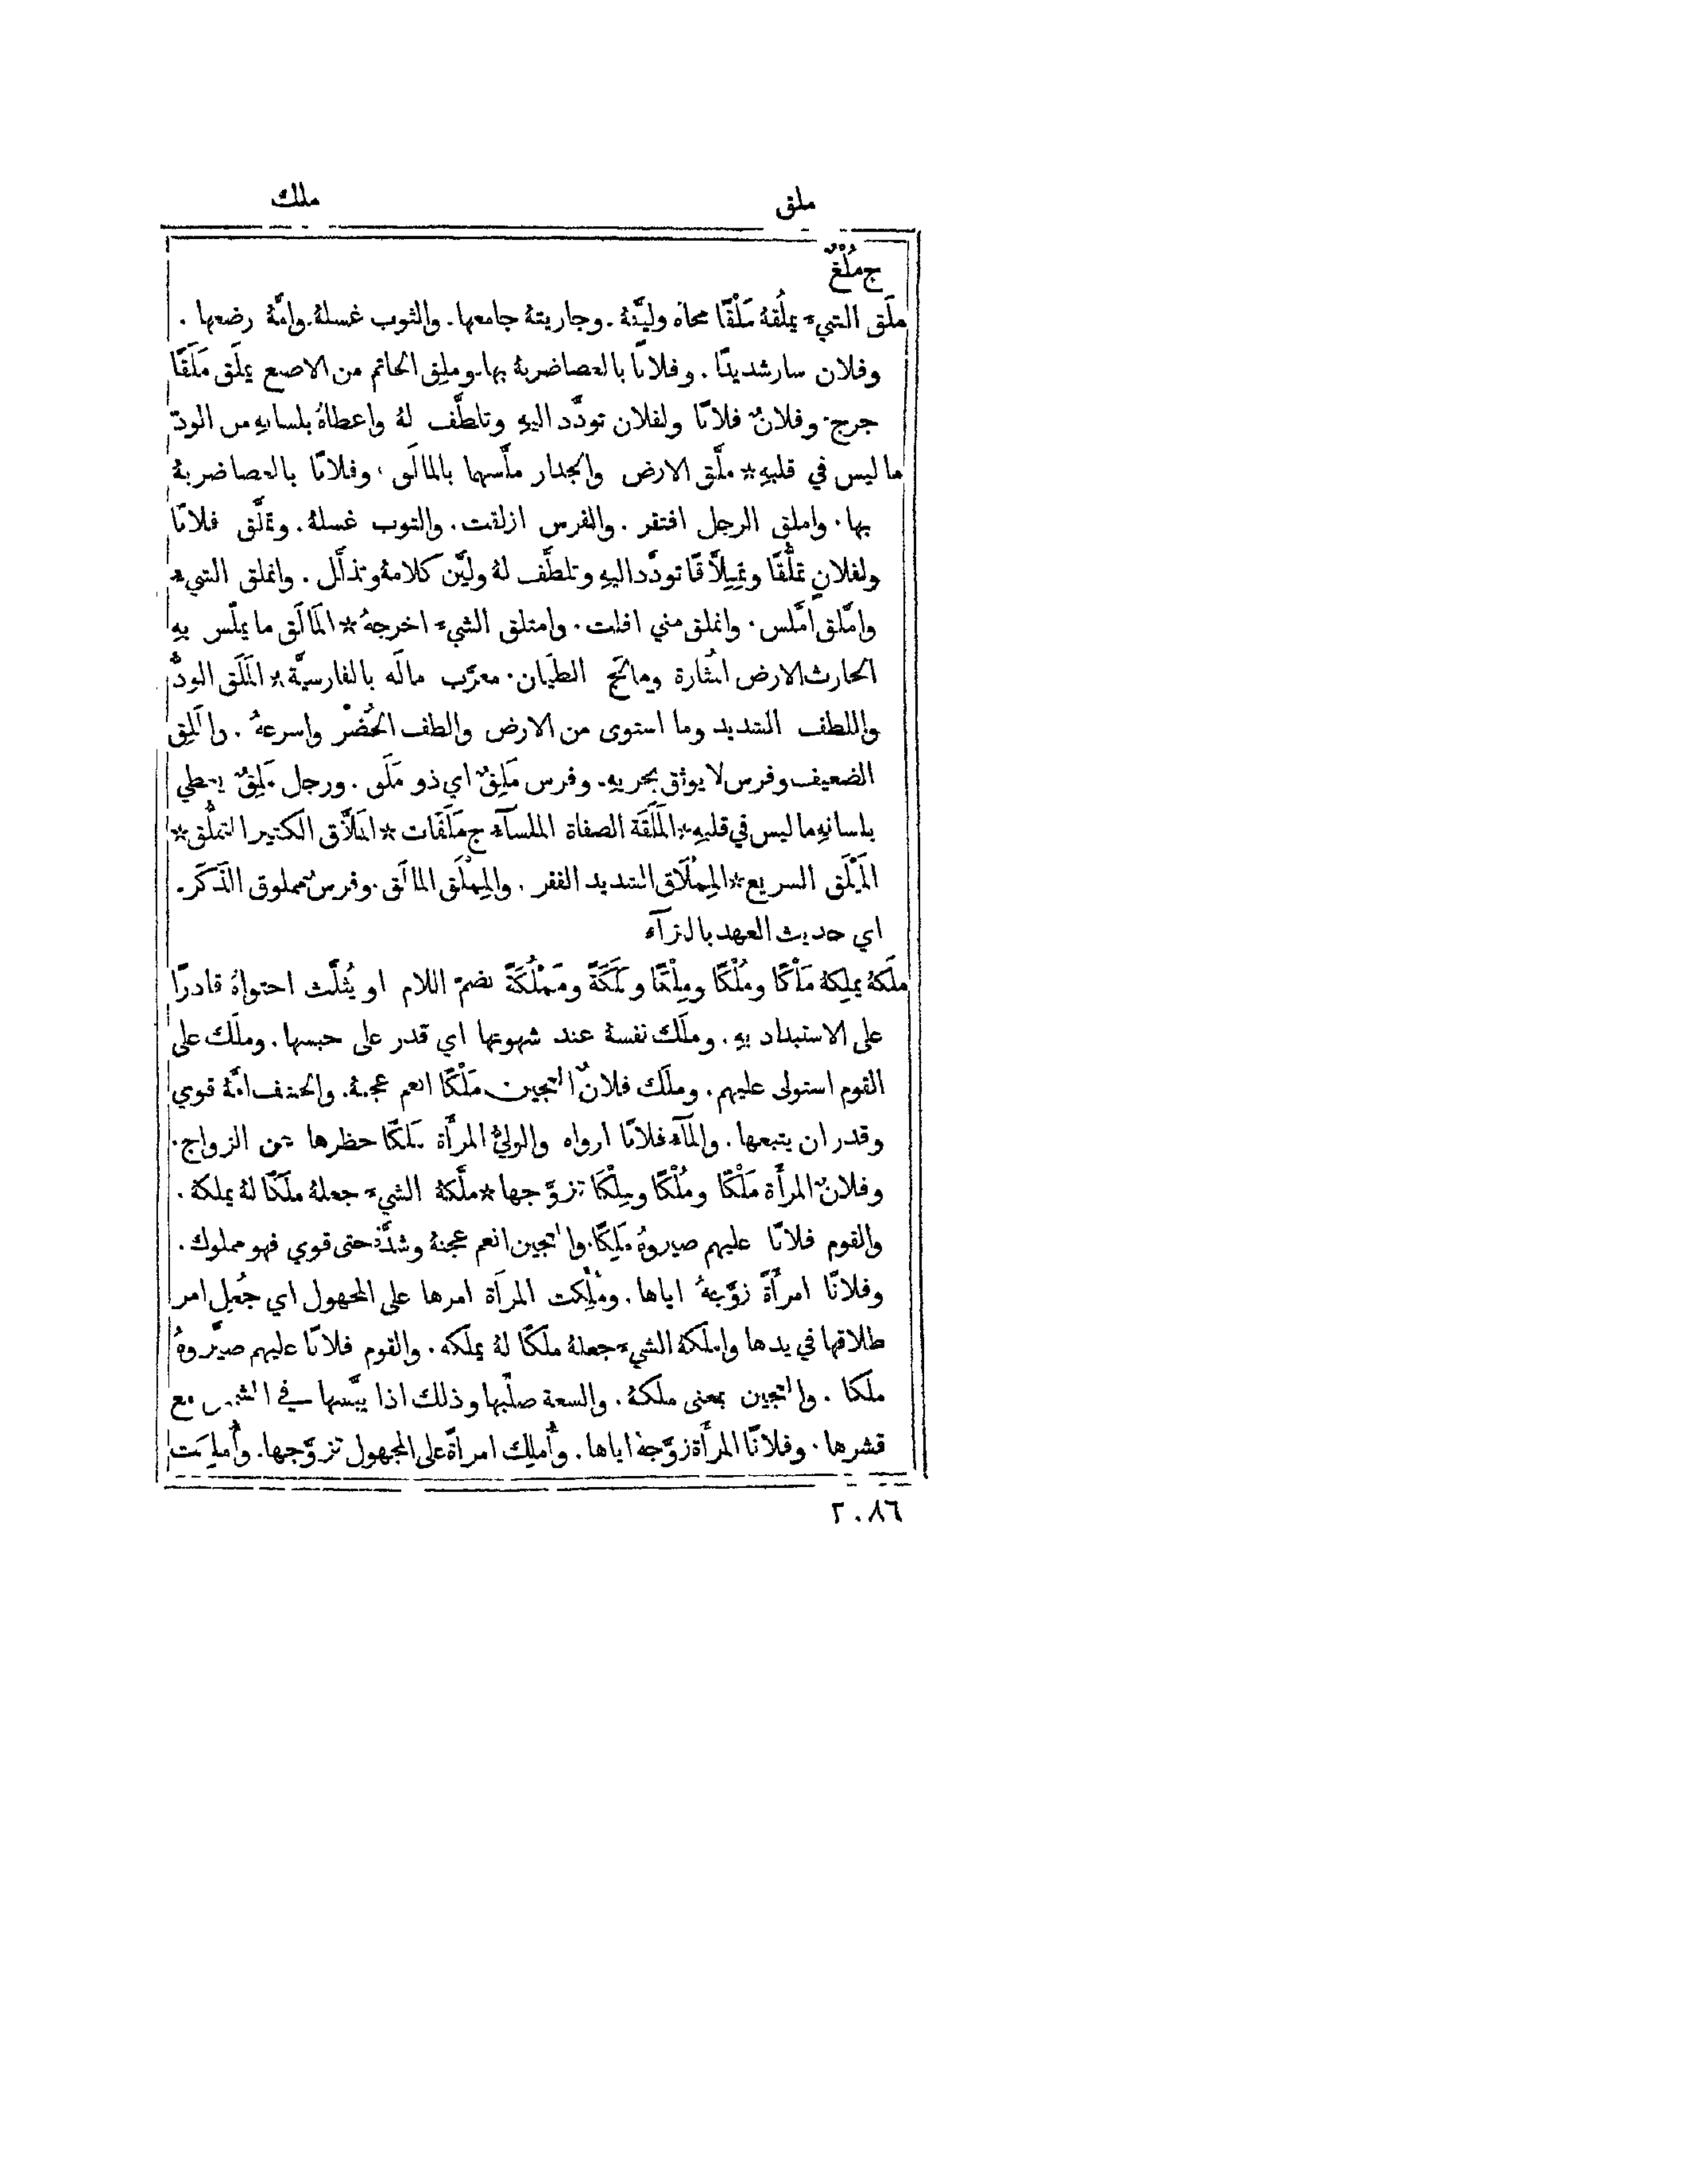 ملق ملك
ج مُلْغٌ
ملَق الشيء يملُقهُ مَلْقًا محاهُ وليَّنهُ. وجاريتهُ جامعها. والثوب غسلهُ. وامَّهُ رضعها.
وفلان سار شديدًا. وفلانًا بالعصا ضربهُ بها. وملِق الخاتم من الاصبع يملَق مَلَقًا
جرج. وفلانٌ فلانًا ولفلان تودَّد اليهِ وتلطَّف لهُ واعطاهُ بلسانهِ من الودّ
ما ليس في قلبهِ * ملَّق الارض والجدار ملَّسهما بالمالَق. وفلانًا بالعصا ضربهُ
بها. واملق الرجل افتقر. والفرس ازلقت. والثوب غسلهُ. وتملَّق فلانًا
ولفلانٍ تملُّقًا وتِمِلاَّقًا تودَّد اليهِ وتلطَّف لهُ وليَّن كلامهُ وتذلَّل. وانملق الشيء
وامَّلق امَّلس. وانملق مني افلت. وامتلق الشيء اخرجهُ * المالَق ما يملّس بهِ
الحارث الارض المُثارة ومالَج الطيَّان. معرَّب مالَه بالفارسيَّة * المَلَق الودُّ
واللطف الشديد وما استوى من الارض والطف الحُضْر واسرعهُ. والمَلِق
الضعيف وفرس لا يوثق بجريهِ. وفرس مَلِقٌ اي ذو مَلَق. ورجل مَلِقٌ يعطي
بلسانهِ ما ليس في قلبهِ * المَلَقَة الصفاة الملسآء ج مَلَقَات * المَلاَّق الكثير التملُّق *
المَيْلَق السريع * المِمْلَاق الشديد الفقر. والمِمْلَق المالَق. وفرس مملوق الذَّكَر.
اي حديث العهد بالنزآء
ملَكهُ يملِكهُ مَلْكًا ومُلْكًا ومِلْكًا ومَلَكَةً ومَمْلُكَةً بضمّ اللام او يُثلَّث احتواهُ قادرًا
على الاستبداد بهِ. وملَك نفسهُ عند شهوتها اي قدر على حبسها. وملَك على
القوم استولى عليهم. وملَك فلانٌ العجين مَلْكًا انعم عجنهُ. والخشف امَّهُ قوي
وقدر ان يتبعها. والمآء فلانًا ارواه والوليُّ المرأَة مَلكًا حظرها عن الزواج.
وفلانٌ المرأَة مَلْكًا ومُلْكًا ومِلْكًا تزوَّجها * ملَّكهُ الشيء جعلهُ ملكًا لهُ يملكهُ.
والقوم فلانًا عليهم صيروهُ مَلِكًا. والعجين انعم عجنهُ وشدَّهُ حتى قوي فهو مملوك.
وفلانًا امرأَةً زوَّجهُ اياها. ومُلِّكت المرأَة امرها على المجهول اي جُعِل امر
طلاقها في يدها واملكهُ الشيء جعلهُ ملكًا لهُ يملكه. والقوم فلانًا عليهم صيَّروهُ
ملكا. والعجين بمعنى ملكهُ. والسعة صلّبها وذلك اذا يبَّسها في الشمس مع
قشرها. وفلانًا المرأَة زوَّجهُ اياها. وأُملِك امرأةً على المجهول تزوَّجها. وأُملِكَت
٢٠٨٦